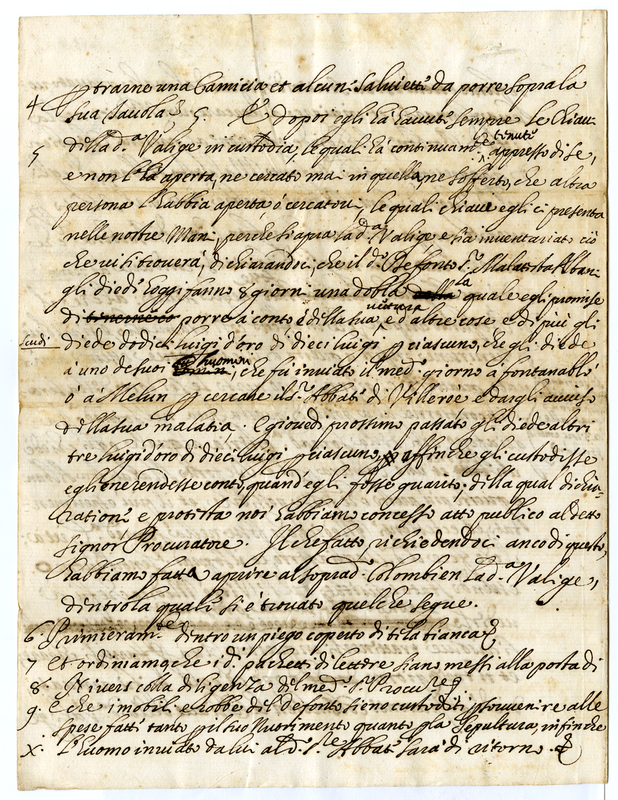 4 p trarne una Camicia et alcune Salviette da porre sopra la
sua Tavola &. 5. E dopoi egli ha havute sempre le Chiavi
5 della d.a Valige in custodia, le quali ha continuam.te tenute appresso di se,
e non l'ha aperta, ne cercato mai in quella, ne sofferto, che altra
persona l'habbia aperta ó cercatovi, le quali chiave egli ci presenta
nelle nostre Mani, perche si apra la d.a Valige e sia inventariato ció
che vi si troverá, dichiarandoci, che il d.o Defonto S.r Malatesta Alban-
gli diedi hoggi fanno 8 giorni una dobla la quale egli promise
di porre á conto é della sua vittura, ed altre cose e di piú gli
scudi diede dodici luigi d'oro di dieci luigi p ciascuno, che gli diede
á uno de suoi huomini, che fú inviato il med.o giorno a fontanabló
ó á Melun p cercare il S.r Abbate di Villeroé e dargli avviso
della sua malatia. E giovedi prossimo passato gli diede altri
tre luigi d'oro di dieci luigi p ciascuno, affinche gli custodisse
egli ne rendesse conto, quand'egli fosse guarito; della qual dichia-
ratione e protesta noi habbiamo concesso atto publico al detto
Signor Procuratore. Il che fatto richiedendoci anco di questo,
habbiamo fatta aprire al soprad.o Colombien la d.a Valige,
dentro la quale si é trovato quelche segue.
6 Primieram.te dentro un piego coperto di tela bianca &
7 et ordiniamo che i d.i pachetti di lettere siano messi alla posta di
8. Nivers colla diligenza del med.o S.r Procu.re
9. E che i mobili e robbe del d.o defonto sieno custoditi p sovvenire alle
spese fatte tanto p il suo Nutrimento quanto p la Sepultura, infin che
X. l'huomo inviato da lui al d.o S.re Abbate sará di ritorno. &